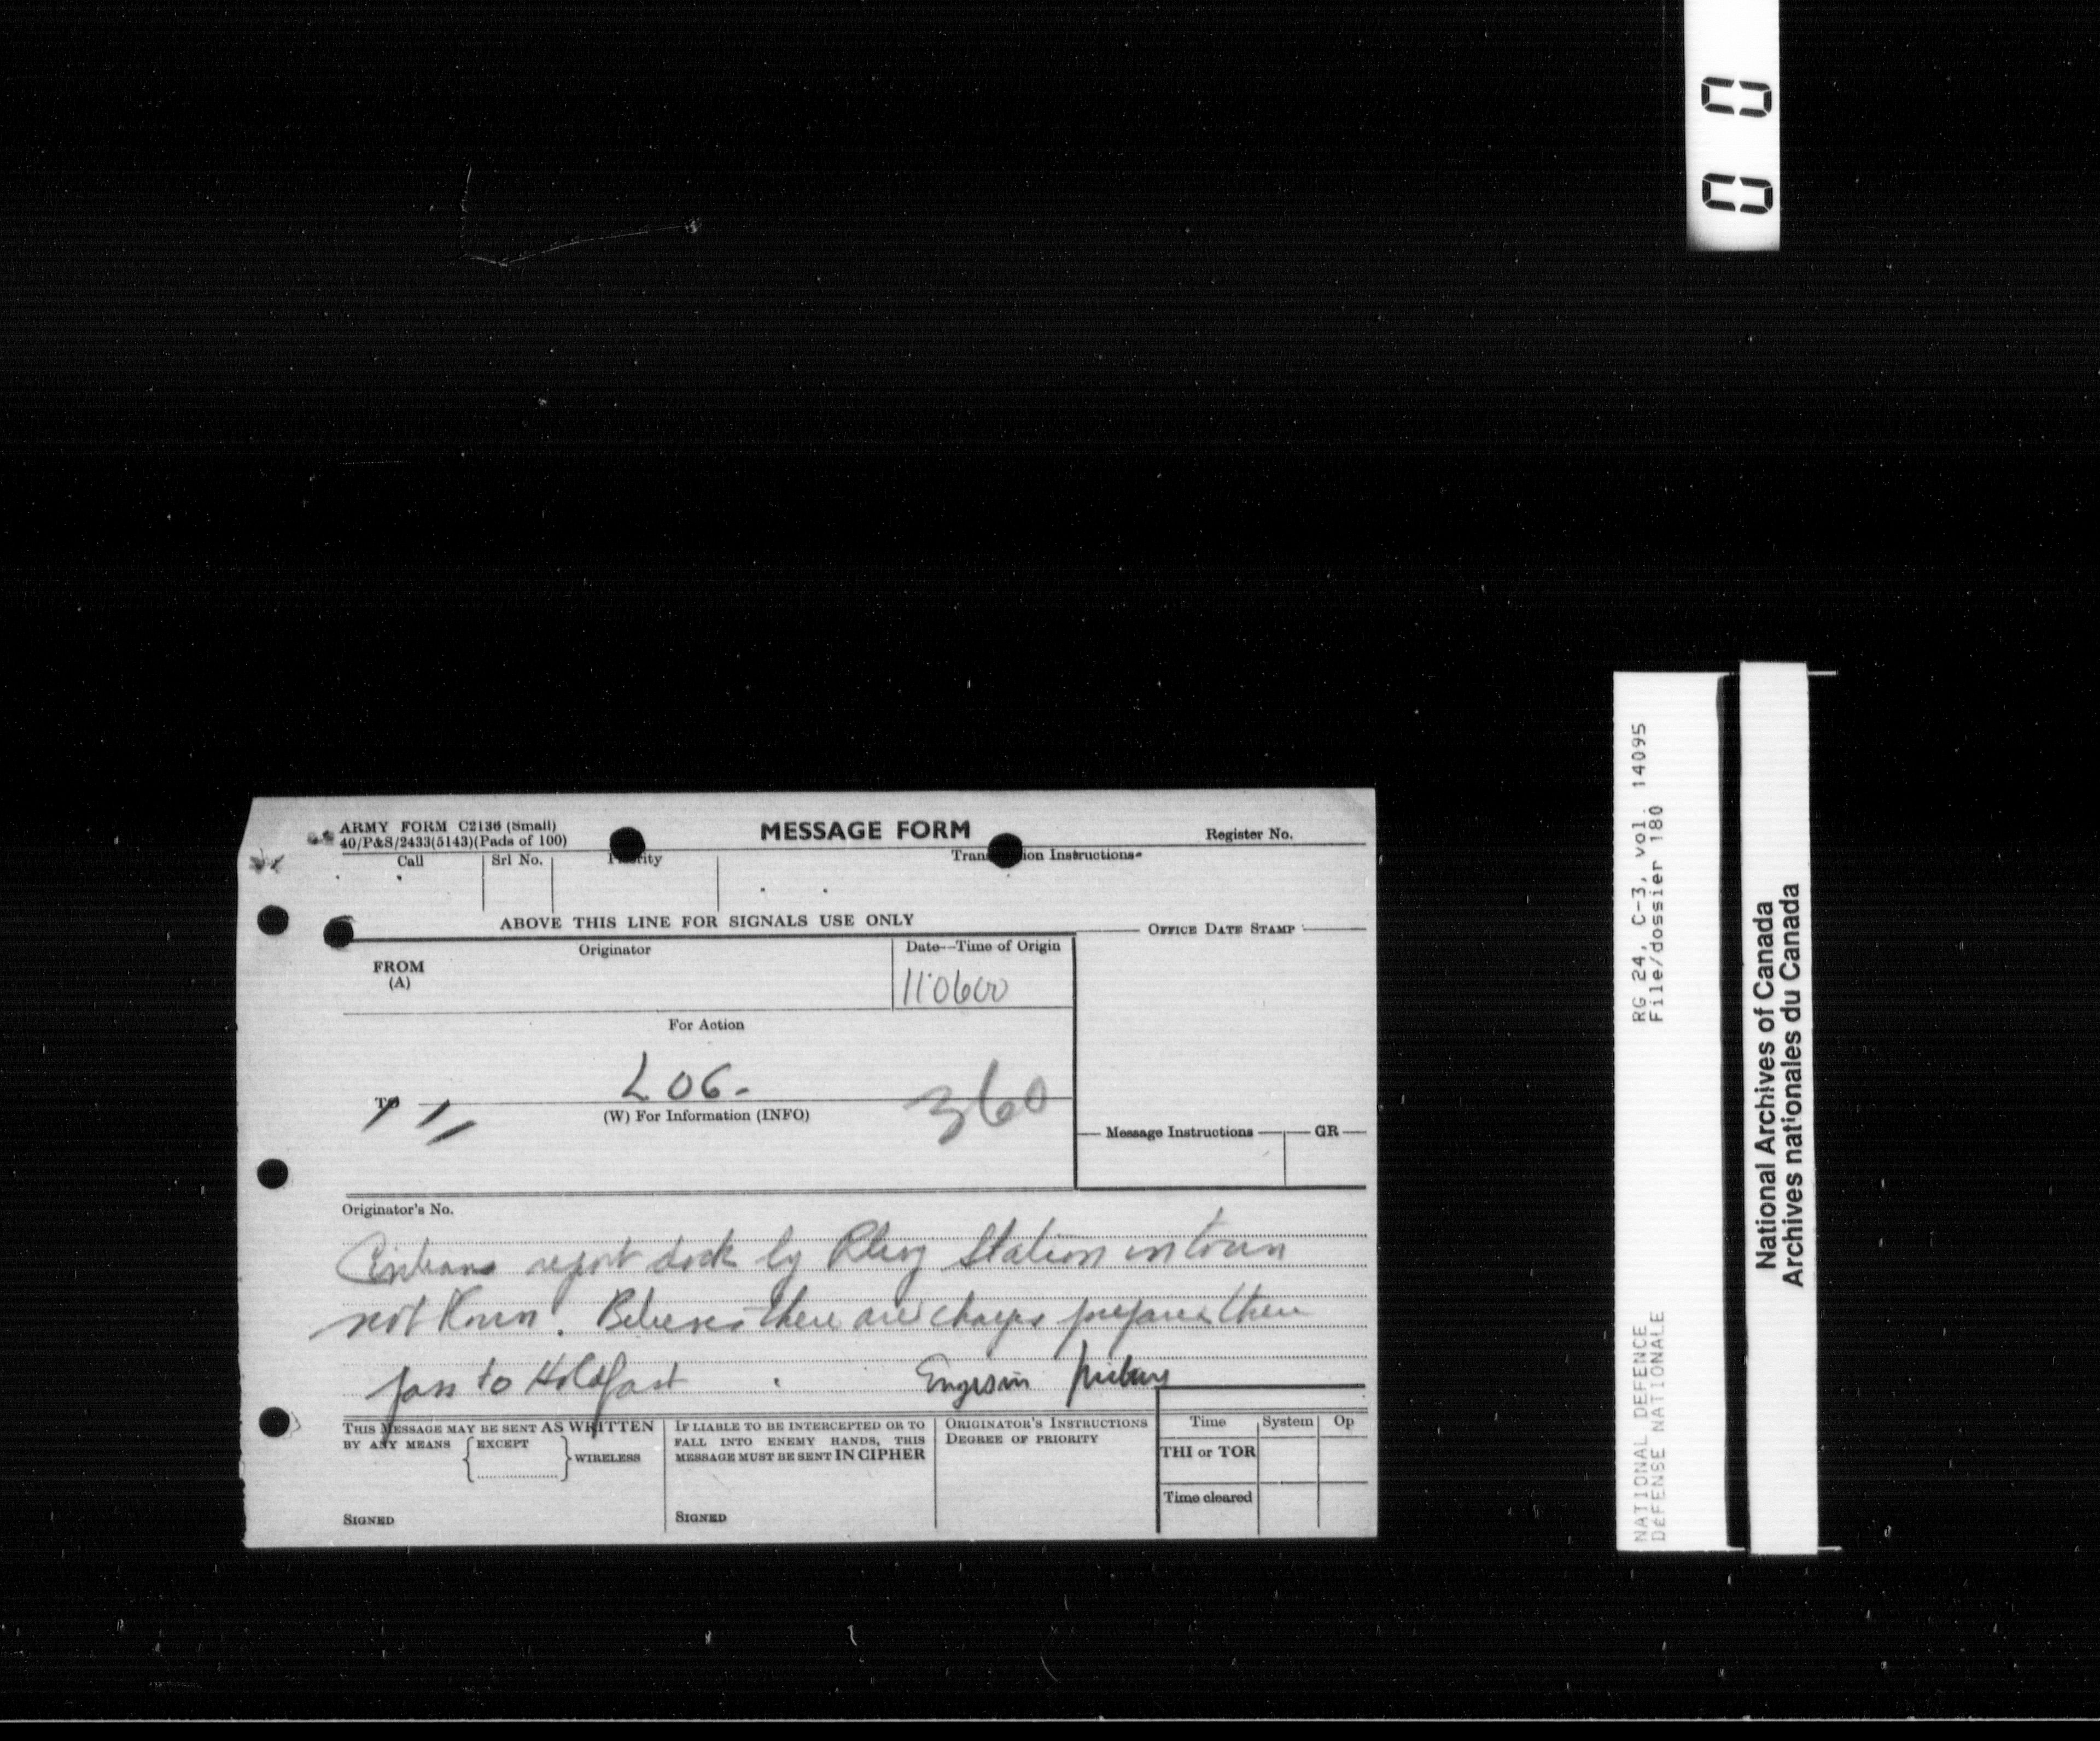 00
ARMY FORM C2136 (Small)
40/P&S/2433(5143)(Pads of 100)
MESSAGE FORM
Register No.
Call
Srl No.
Priority
Transmission Instructions
ABOVE THIS LINE FOR SIGNALS USE ONLY
OFFICE DATE STAMP
FROM
(A)
Originator
Date—Time of Origin
110600
For Action
TO
LOG-
360
(W) For Information (INFO)
Message Instructions
GR
Originator's No.
report dock by Rlwy Station in town
not known. Believes there are charges prepared there
pass to Holdfast
THIS MESSAGE MAY BE SENT AS WRITTEN
BY ANY MEANS { EXCEPT } WIRELESS
SIGNED
IF LIABLE TO BE INTERCEPTED OR TO
FALL INTO ENEMY HANDS, THIS
MESSAGE MUST BE SENT IN CIPHER
SIGNED
ORIGINATOR'S INSTRUCTIONS
DEGREE OF PRIORITY
Time
System
Op
THI or TOR
Time cleared
RG 24, C-3, vol. 14095
File/dossier 180
NATIONAL DEFENCE
DÉFENSE NATIONALE
National Archives of Canada
Archives nationales du Canada